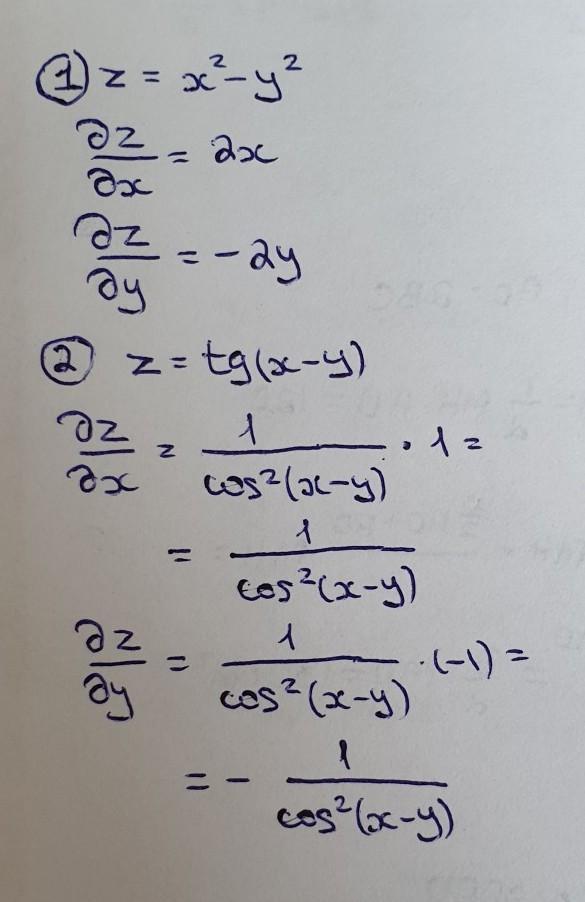 ① z = x² - y²
∂z/∂x = 2x
∂z/∂y = -2y
② z = tg(x-y)
∂z/∂x = 1/cos²(x-y) · 1 =
= 1/cos²(x-y)
∂z/∂y = 1/cos²(x-y) · (-1) =
= - 1/cos²(x-y)